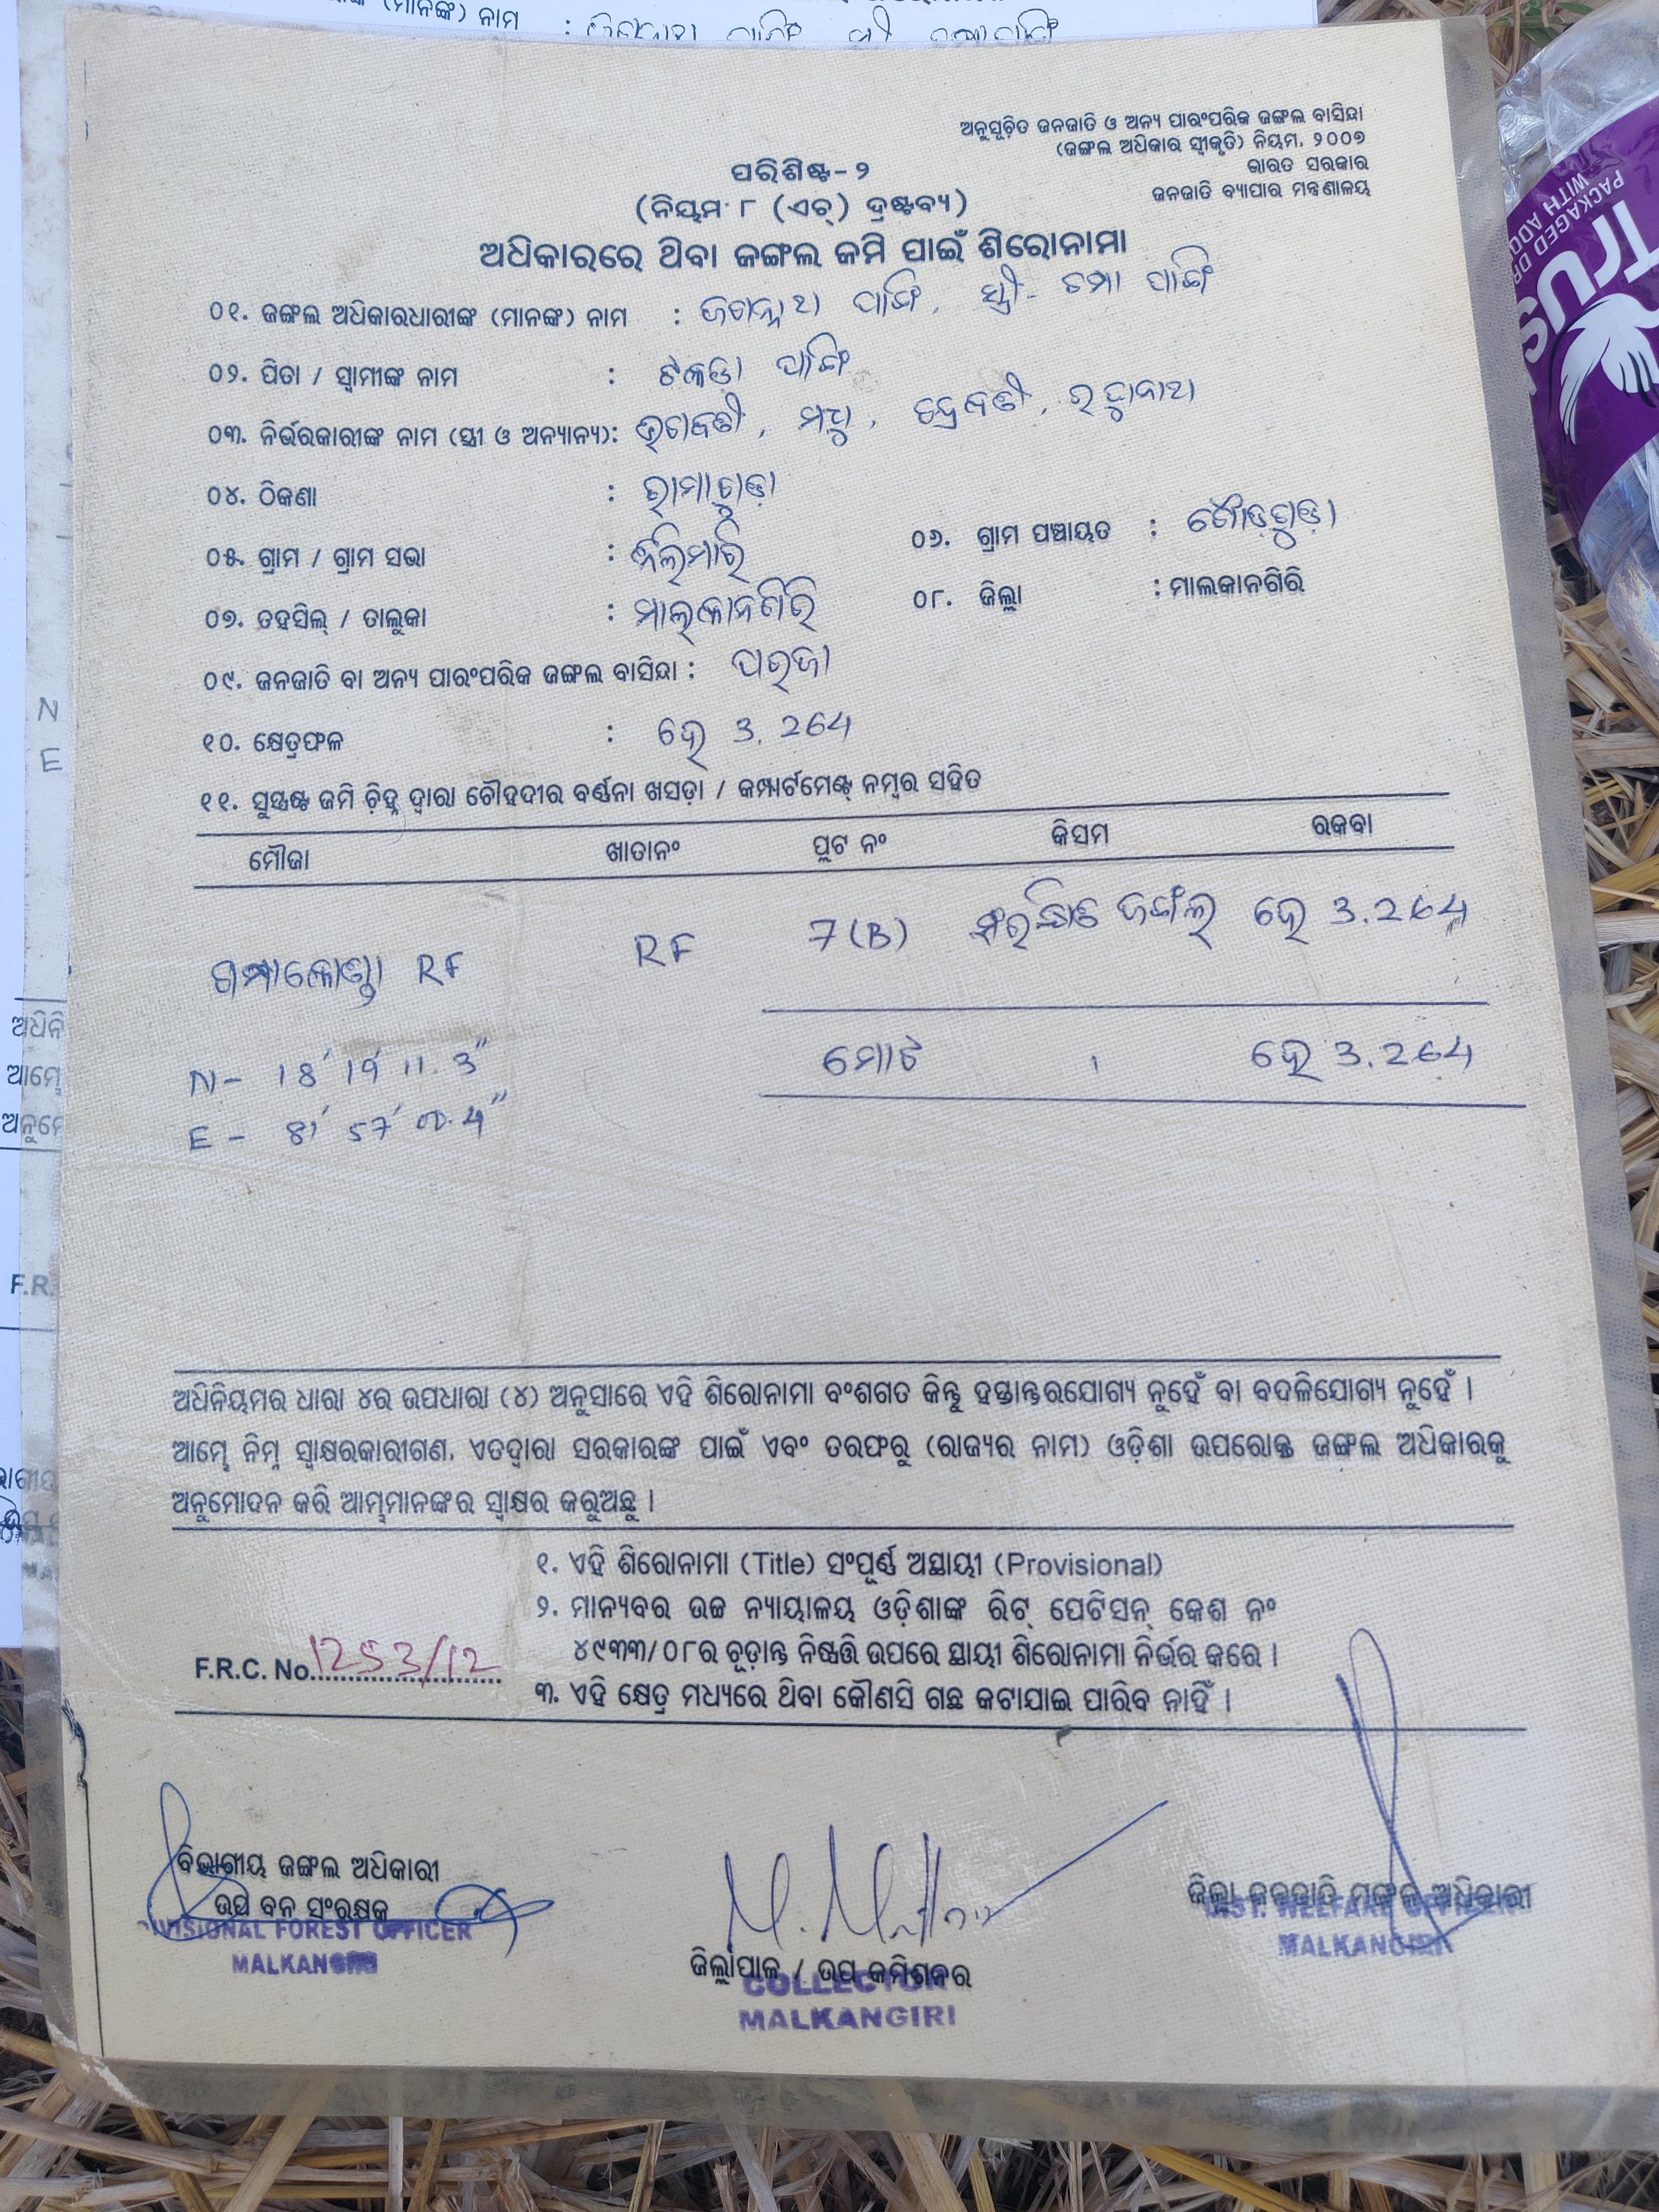 (ମାନଙ୍କ) ନାମ :
ଅନୁସୂଚିତ ଜନଜାତି ଓ ଅନ୍ୟ ପାରଂପରିକ ଜଙ୍ଗଲ ବାସିନ୍ଦା
(ଜଙ୍ଗଲ ଅଧିକାର ସ୍ୱୀକୃତି) ନିୟମ, ୨୦୦୭
ଭାରତ ସରକାର
ଜନଜାତି ବ୍ୟାପାର ମନ୍ତ୍ରଣାଳୟ
ପରିଶିଷ୍ଟ-୨
(ନିୟମ ୮ (ଏଚ୍) ଦ୍ରଷ୍ଟବ୍ୟ)
ଅଧିକାରରେ ଥିବା ଜଙ୍ଗଲ ଜମି ପାଇଁ ଶିରୋନାମା
୦୧. ଜଙ୍ଗଲ ଅଧିକାରଧାରୀଙ୍କ (ମାନଙ୍କ) ନାମ : ଜଗନ୍ନାଥ ପାଙ୍ଗି, ସ୍ତ୍ରୀ- ଚମ୍ପା ପାଙ୍ଗି
୦୨. ପିତା / ସ୍ୱାମୀଙ୍କ ନାମ : ପାଙ୍ଗି
୦୩. ନିର୍ଭରକାରୀଙ୍କ ନାମ (ସ୍ତ୍ରୀ ଓ ଅନ୍ୟାନ୍ୟ): ଭଗବତୀ, ମଧୁ, ରଘୁନାଥ
୦୪. ଠିକଣା : ରାମାଗୁଡ଼ା
୦୫. ଗ୍ରାମ / ଗ୍ରାମ ସଭା : ନିଲିମାରି
୦୬. ଗ୍ରାମ ପଞ୍ଚାୟତ : ଗୌଡ଼ଗୁଡ଼ା
୦୭. ତହସିଲ୍ / ତାଲୁକା : ମାଲକାନଗିରି
୦୮. ଜିଲ୍ଲା : ମାଲକାନଗିରି
୦୯. ଜନଜାତି ବା ଅନ୍ୟ ପାରଂପରିକ ଜଙ୍ଗଲ ବାସିନ୍ଦା : ପରଜା
୧୦. କ୍ଷେତ୍ରଫଳ : ହେ 3.264
୧୧. ସୁସ୍ପଷ୍ଟ ଜମି ଚିହ୍ନ ଦ୍ୱାରା ଚୌହଦୀର ବର୍ଣ୍ଣନା ଖସଡ଼ା / କମ୍ପାର୍ଟମେଣ୍ଟ୍ ନମ୍ବର ସହିତ
ମୌଜା ଖାତାନଂ ପ୍ଲଟ ନଂ କିସମ ରକବା
ଗମ୍ପାକୋଣ୍ଡା RF RF 7(B) ସଂରକ୍ଷିତ ଜଙ୍ଗଲ ହେ 3.264
ମୋଟ ହେ 3.264
N- 18' 19' 11.3"
E- 81' 57' 00.4"
ଅଧିନିୟମର ଧାରା ୪ର ଉପଧାରା (୪) ଅନୁସାରେ ଏହି ଶିରୋନାମା ବଂଶଗତ କିନ୍ତୁ ହସ୍ତାନ୍ତରଯୋଗ୍ୟ ନୁହେଁ ବା ବଦଳିଯୋଗ୍ୟ ନୁହେଁ ।
ଆମ୍ଭେ ନିମ୍ନ ସ୍ୱାକ୍ଷରକାରୀଗଣ, ଏତଦ୍ୱାରା ସରକାରଙ୍କ ପାଇଁ ଏବଂ ତରଫରୁ (ରାଜ୍ୟର ନାମ) ଓଡ଼ିଶା ଉପରୋକ୍ତ ଜଙ୍ଗଲ ଅଧିକାରକୁ
ଅନୁମୋଦନ କରି ଆମ୍ଭମାନଙ୍କର ସ୍ୱାକ୍ଷର କରୁଅଛୁ ।
୧. ଏହି ଶିରୋନାମା (Title) ସଂପୂର୍ଣ୍ଣ ଅସ୍ଥାୟୀ (Provisional)
୨. ମାନ୍ୟବର ଉଚ୍ଚ ନ୍ୟାୟାଳୟ ଓଡ଼ିଶାଙ୍କ ରିଟ୍ ପେଟିସନ୍ କେଶ ନଂ
୪୯୩୩/୦୮ର ଚୂଡ଼ାନ୍ତ ନିଷ୍ପତ୍ତି ଉପରେ ସ୍ଥାୟୀ ଶିରୋନାମା ନିର୍ଭର କରେ ।
F.R.C. No. 1253/12
୩. ଏହି କ୍ଷେତ୍ର ମଧ୍ୟରେ ଥିବା କୌଣସି ଗଛ କଟାଯାଇ ପାରିବ ନାହିଁ ।
ବିଭାଗୀୟ ଜଙ୍ଗଲ ଅଧିକାରୀ
ଉପ ବନ ସଂରକ୍ଷକ
DIVISIONAL FOREST OFFICER
MALKANGIRI
ଜିଲ୍ଲାପାଳ / ଉପ କମିଶନର
COLLECTOR
MALKANGIRI
ଜିଲ୍ଲା ଜନଜାତି ମଙ୍ଗଳ ଅଧିକାରୀ
DIST. WELFARE OFFICER
MALKANGIRI